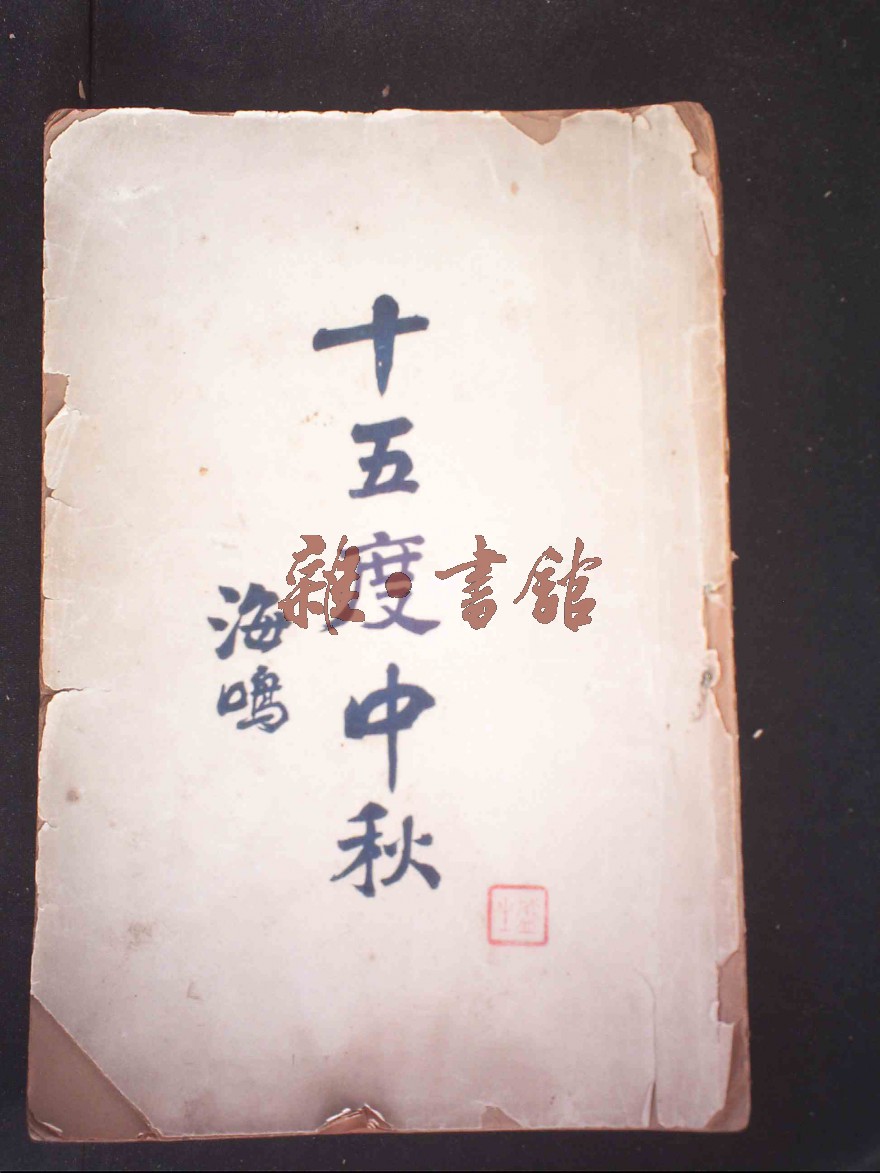 十五度中秋
海鳴
雜·書館